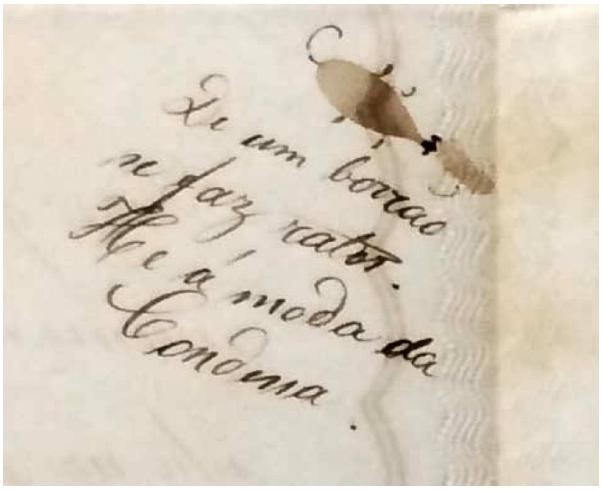 De um borrao
se faz ratos.
He á moda da
Condessa.